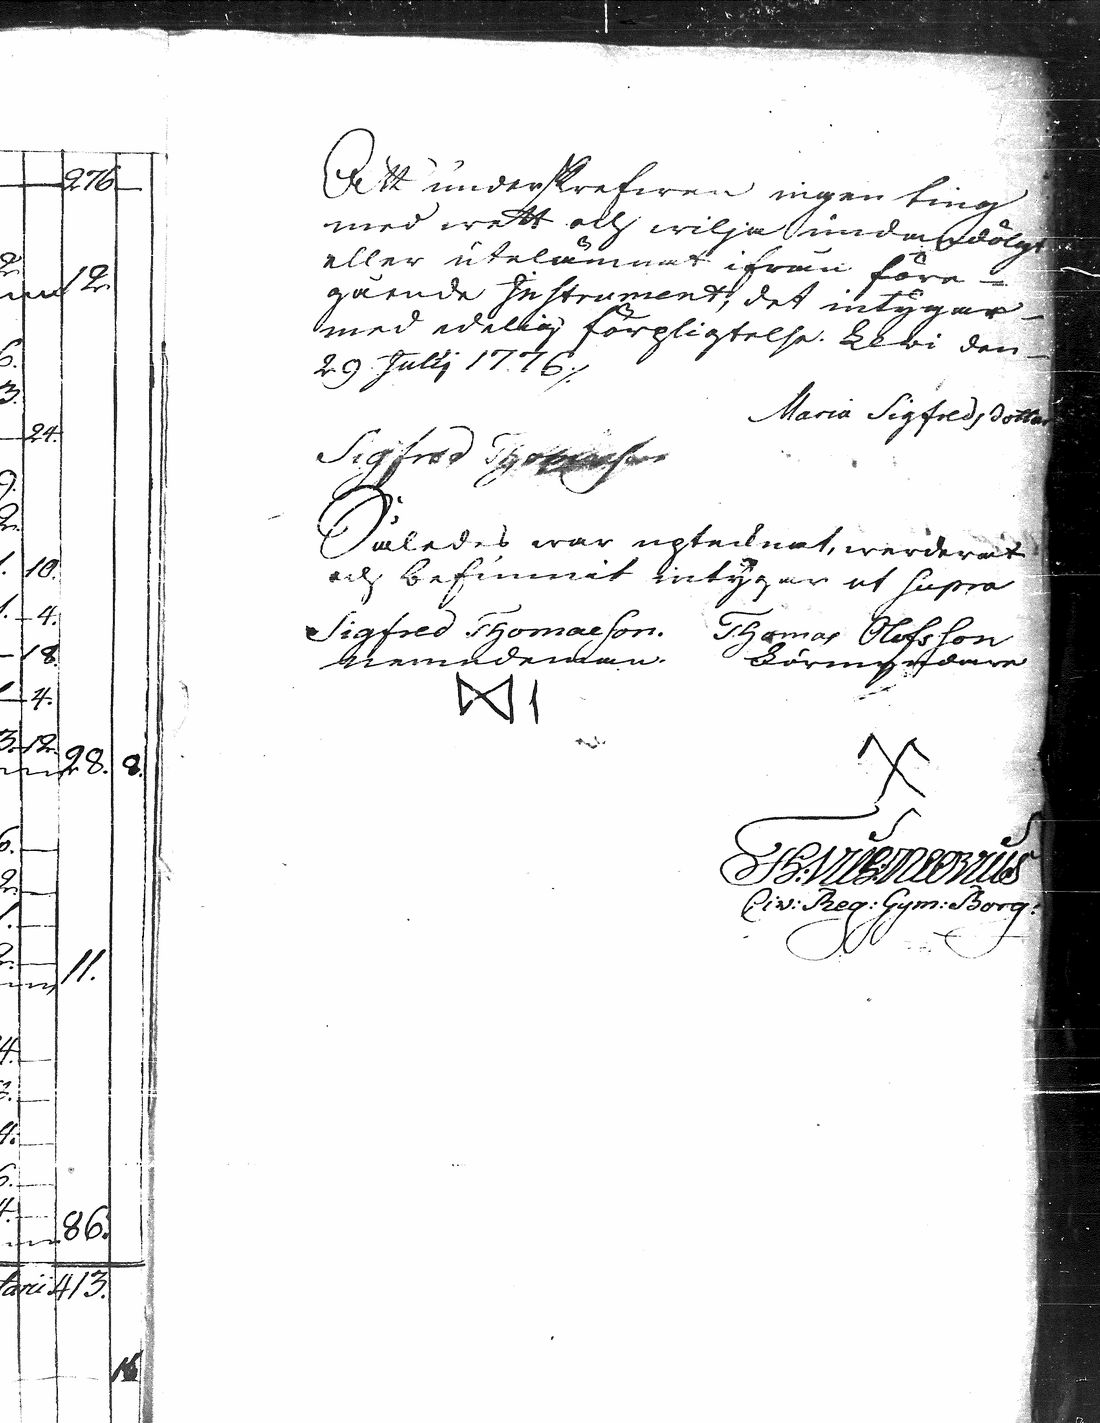 276
12.
24.
10.
4.
18.
4.
3. 12.
28. 8.
11.
86.
413.
16
Att underskrefwen ingen ting
med wett och wilja undandölgt
eller utelämnat ifrån före-
gående Instrument, det intygar
med edelig förpligtelse. Skewi den
29 Julij 1776./.
Maria Sigfredsdotter
Sigfred Thomasson
Således war uptecknat, werderat
och befunnit intygar ut supra
Sigfred Thomaeson. Thomas Olofsson
nemndeman. Förmyndare
Civ: Reg: Gym: Borg: